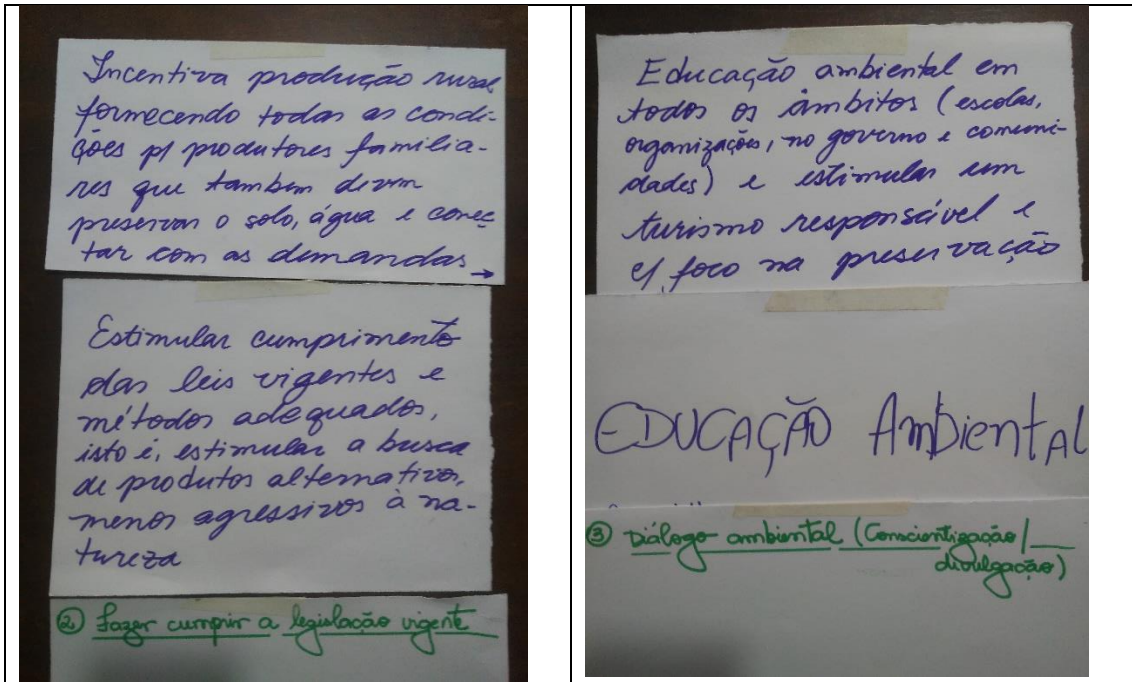 Incentiva produção rural
fornecendo todas as condi-
ções p/ produtores familia-
res que também devem
preservar o solo, água e conec
tar com as demandas →
Estimular cumprimento
das leis vigentes e
métodos adequados,
isto é, estimular a busca
de produtos alternativos,
menos agressivos à na-
tureza
② Fazer cumprir a legislação vigente
Educação ambiental em
todos os âmbitos (escolas,
organizações, no governo e comuni-
dades) e estimular um
turismo responsável e
c/ foco na preservação
EDUCAÇÃO AmbientAl
③ Diálogo ambiental (Conscientização/
divulgação)